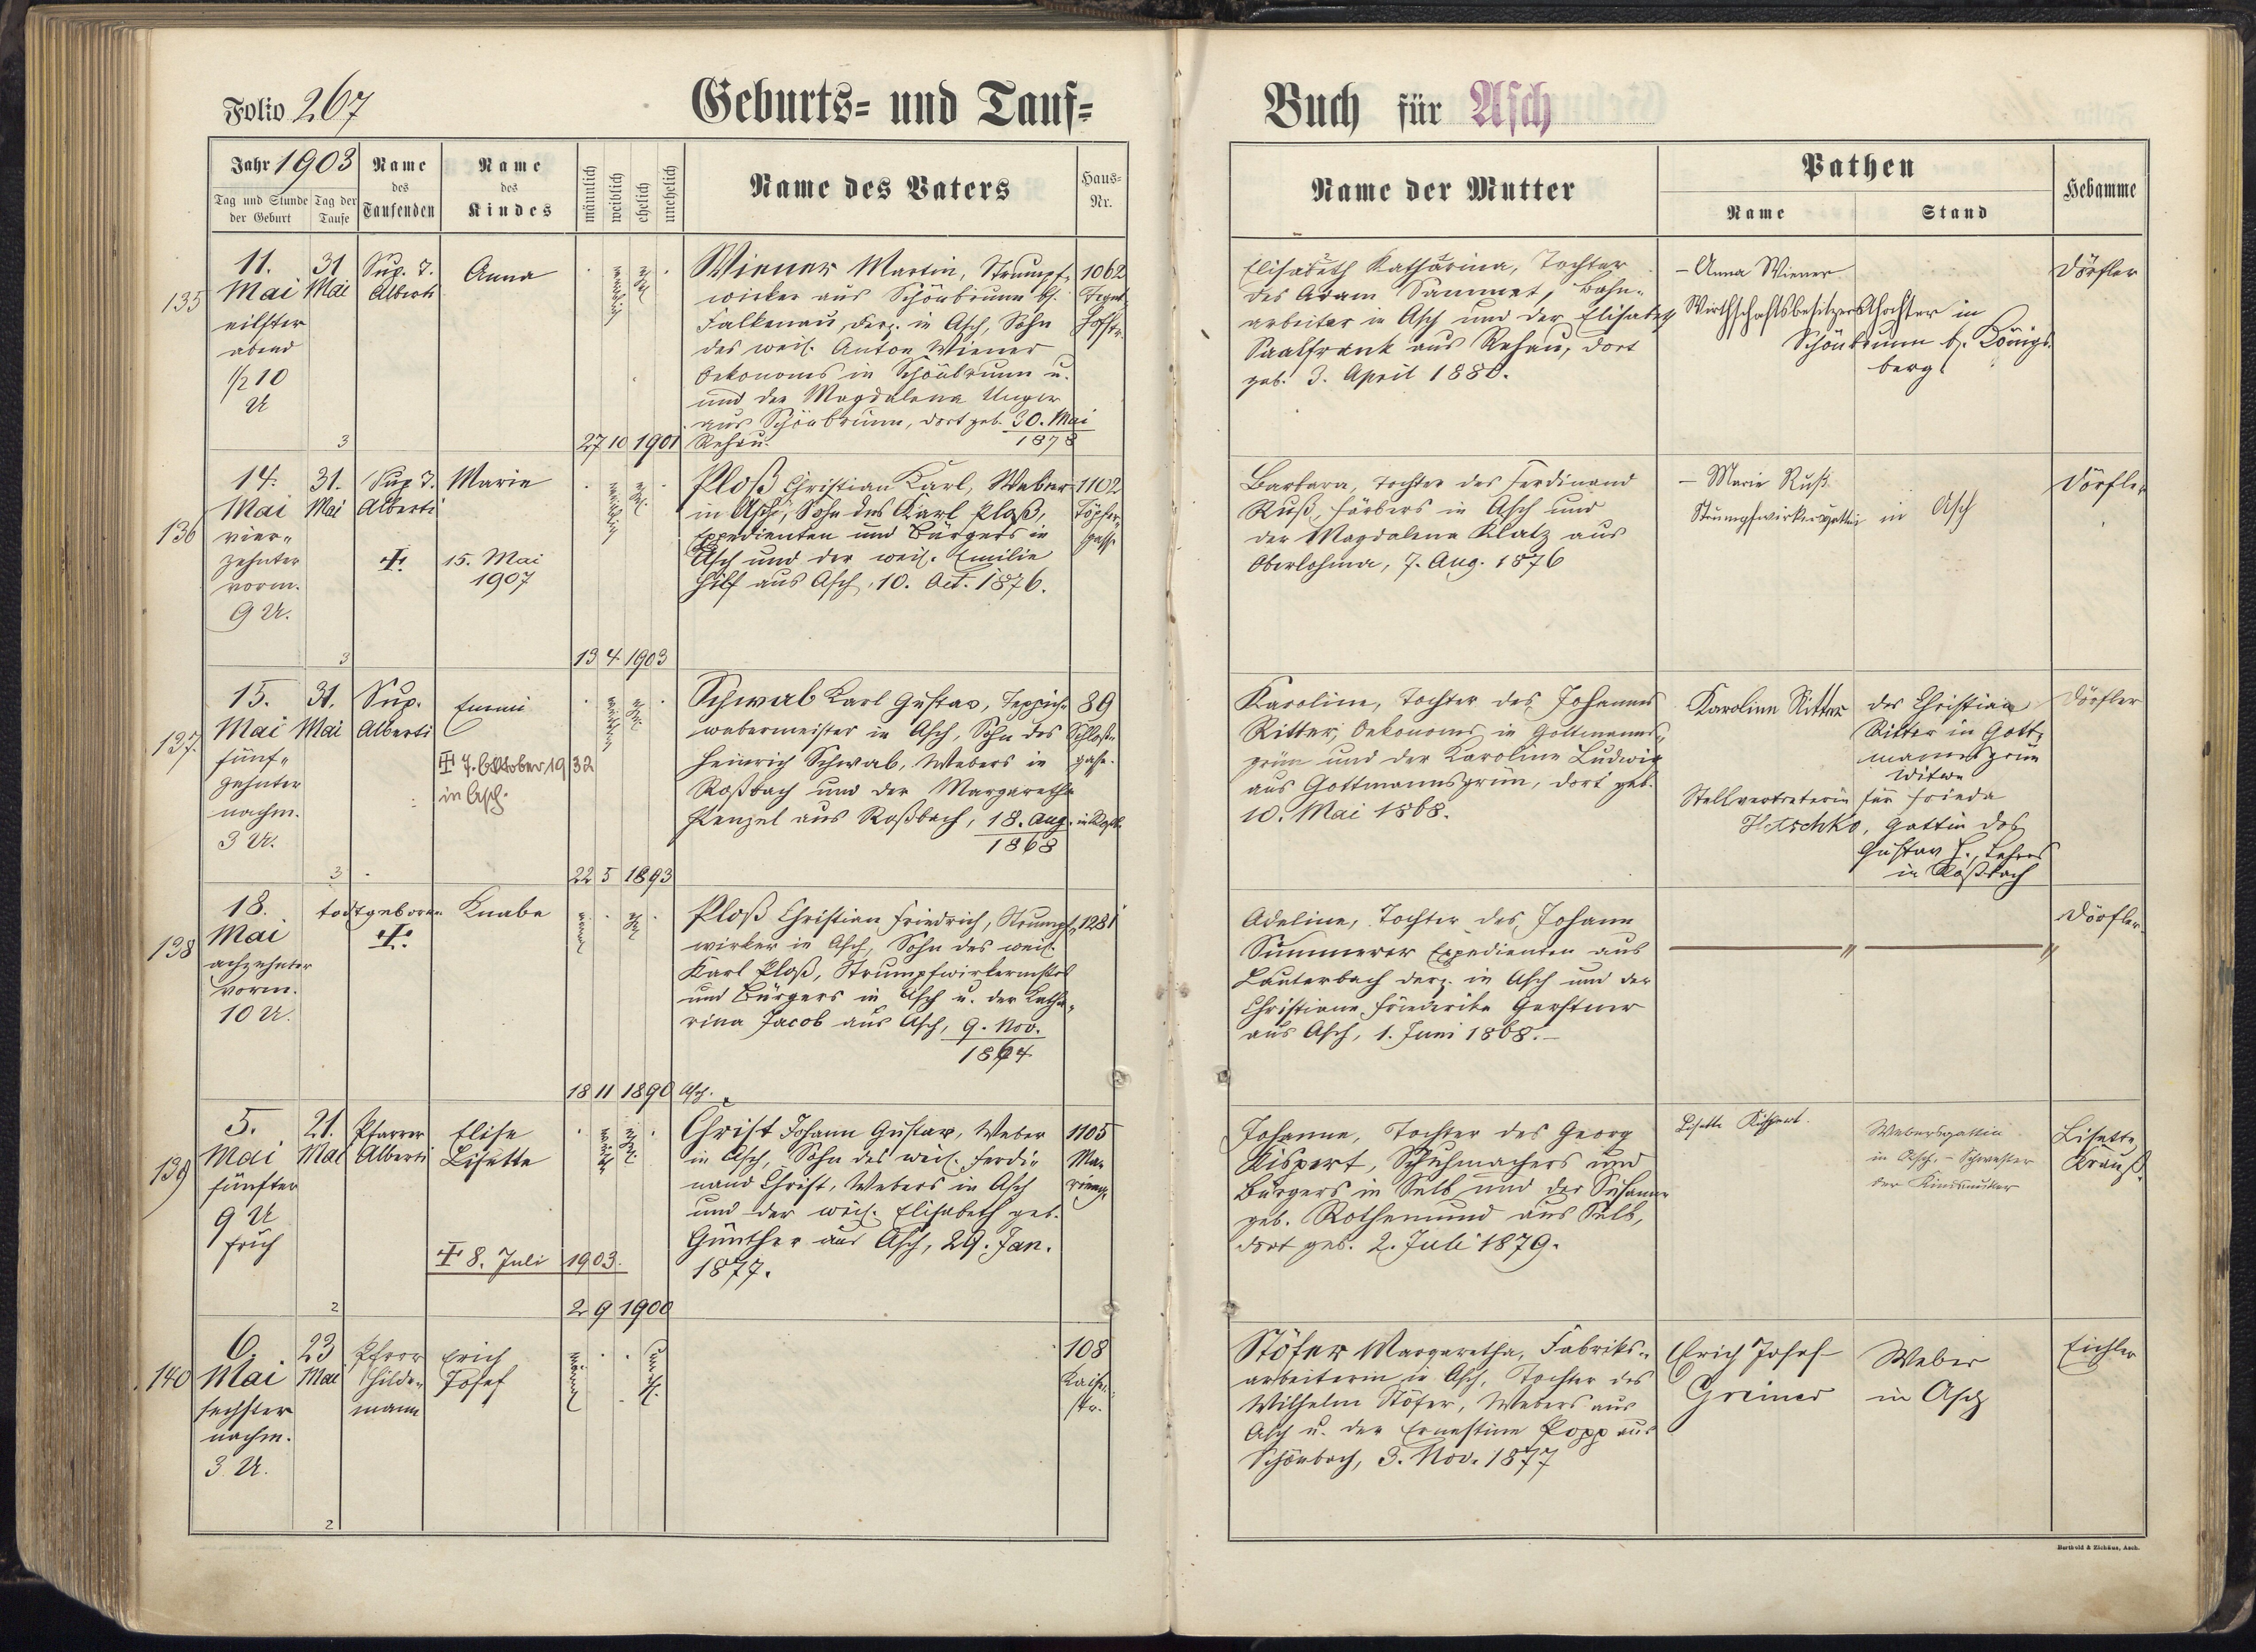 Folio 267
Geburts- und Tauf-
Buch für Asch
Jahr 1903
Tag und Stunde der Geburt
Tag der Taufe
Name des Taufenden
Name des Kindes
männlich
weiblich
ehelich
unehelich
Name des Vaters
Haus-Nr.
Name der Mutter
Pathen
Name
Stand
Hebamme
135
11.
Mai
eilfter
abend
1/2 10
U
31
Mai
Sup. T.
Alberti
Anna
weiblich
ehel.
Wiener Martin, Strumpf-
wirker aus Schönbrunn bh.
Falkenau, derz. in Asch, Sohn
des weil. Anton Wiener
Oekonoms in Schönbrunn u.
und der Magdalena Unger
aus Schönbrunn, dort geb. 30. Mai
1878
1062
Hofstr.
3
27 10 1901 Rehau.
Elisabeth Katharina, Tochter
des Adam Sammet, Bahn-
arbeiter in Asch und der Elisabeth
Saalfrank aus Rehau, dort
geb. 3. April 1880.
– Anna Wiener
Wirthschaftsbesitzersthochter in
Schönbrunn b. Königs-
berg
Dörfler
136
14.
Mai
vier-
zehnter
vorm.
9 U.
31.
Mai
Sup. T.
Alberti
Marie
15. Mai
1907
weiblich
ehel.
Ploß Christian Karl, Weber
in Asch, Sohn des Karl Ploß,
Expedienten und Bürgers in
Asch und der weil. Emilie
Hilf aus Asch, 10. Oct. 1876.
1102
Töpfer-
gasse
3
13 4 1903
Barbara, Tochter des Ferdinand
Ruß, Färbers in Asch und
der Magdalena Klatz aus
Oberlohma, 7. Aug. 1876
– Marie Ruß
Strumpfwirkersgattin in Asch
Dörfler
137
15.
Mai
fünf-
zehnter
nachm.
3 U.
31.
Mai
Sup.
Alberti
Emmi
7. Oktober 1932
in Asch.
weiblich
ehel.
Schwab Karl Gustav, Teppich-
webermeister in Asch, Sohn des
Heinrich Schwab, Webers in
Roßbach und der Margaretha
Penzel aus Roßbach, 18. Aug.
1868
in Roßb.
89
Schloß-
gasse.
3
22 5 1893
Karoline, Tochter des Johannes
Ritter, Oekonoms in Gottmanns-
grün und der Karoline Ludwig
aus Gottmannsgrün, dort geb.
10. Mai 1868.
Karoline Ritter
des Christian
Ritter in Gott-
mannsgrün
Witwe
Stellvertreterin für Frieda
Hetschko, Gattin des
Gustav H., Lehrers
in Roßbach
Dörfler
138
18.
Mai
achzehnter
vorm.
10 U.
todtgeboren
Knabe
männl.
ehel.
Ploß Christian Friedrich, Strumpf-
wirker in Asch, Sohn des weil.
Karl Ploß, Strumpfwirkermstrs
und Bürgers in Asch u. der Katha-
rina Jacob aus Asch, 9. Nov.
1864
1281
18 11 1890 Asch.
Adeline, Tochter des Johann
Summerer Expedienten aus
Lauterbach derz. in Asch und der
Christiane Friederike Gerstner
aus Asch, 1. Juni 1868.–
Dörfler
139
5.
Mai
fünfter
9 U
früh
21.
Mai
Pfarrer
Alberti
Elise
Lisette
8. Juli 1903.
weibl.
ehel.
Christ Johann Gustav, Weber
in Asch, Sohn des weil. Ferdi-
nand Christ, Webers in Asch
und der weil. Elisabeth geb.
Günther aus Asch, 29. Jan.
1877.
1105
2
2 9 1900
Johanne, Tochter des Georg
Kispert, Schuhmachers und
Bürgers in Selb und der Susanne
geb. Rothemund aus Selb,
dort geb. 2. Juli 1879.
Lisette Kispert.
Webersgattin
in Asch, – Schwester
der Kindsmutter
Lisette
Krauß.
140
6.
Mai
sechster
nachm.
3 U.
23
Mai
Pfarr
Hilde-
mann
Erich
Josef
männl.
unehel.
108
Kaiser-
str.
2
Stöfer Margaretha, Fabriks-
arbeiterin in Asch, Tochter des
Wilhelm Stöfer, Webers aus
Asch u. der Ernestine Popp aus
Schönbach, 3. Nov. 1877
Erich Josef
Greiner
Weber
in Asch
Eichler
Berthold & Zichäus, Asch.